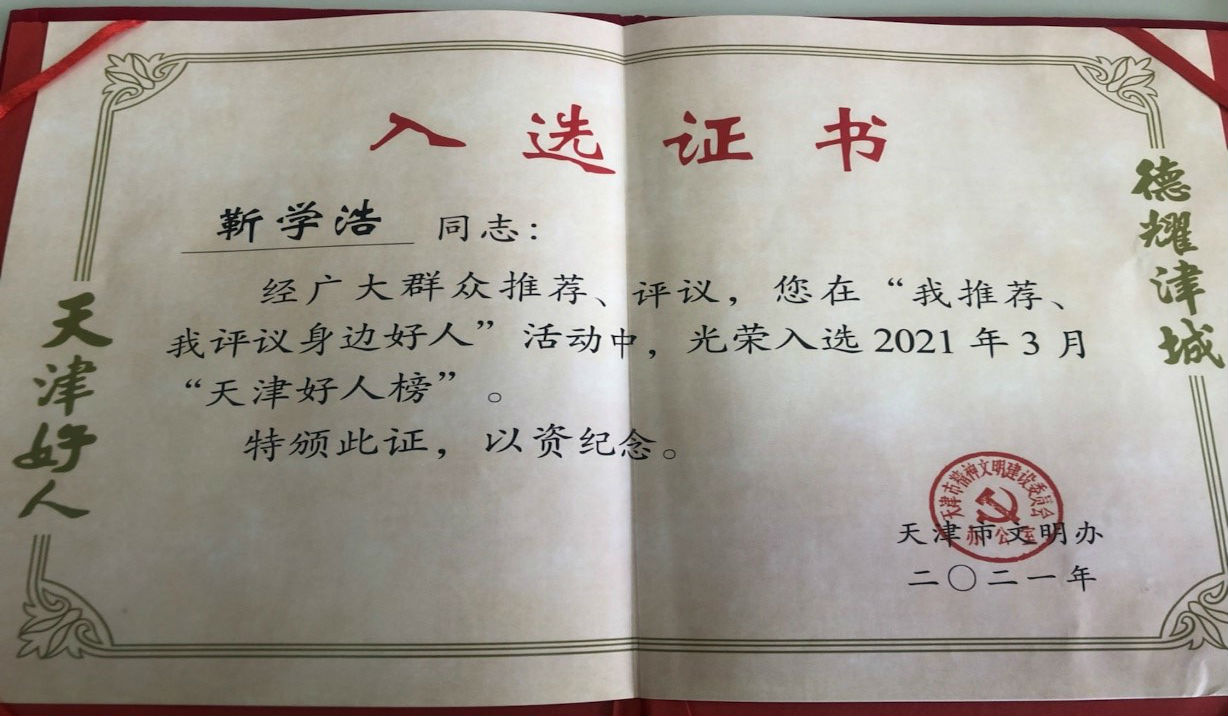 入选证书
靳学浩 同志：
经广大群众推荐、评议，您在“我推荐、
我评议身边好人”活动中，光荣入选2021年3月
“天津好人榜”。
特颁此证，以资纪念。
天津市文明办
二〇二一年
天津市精神文明建设委员会
办公室
天津好人
德耀津城